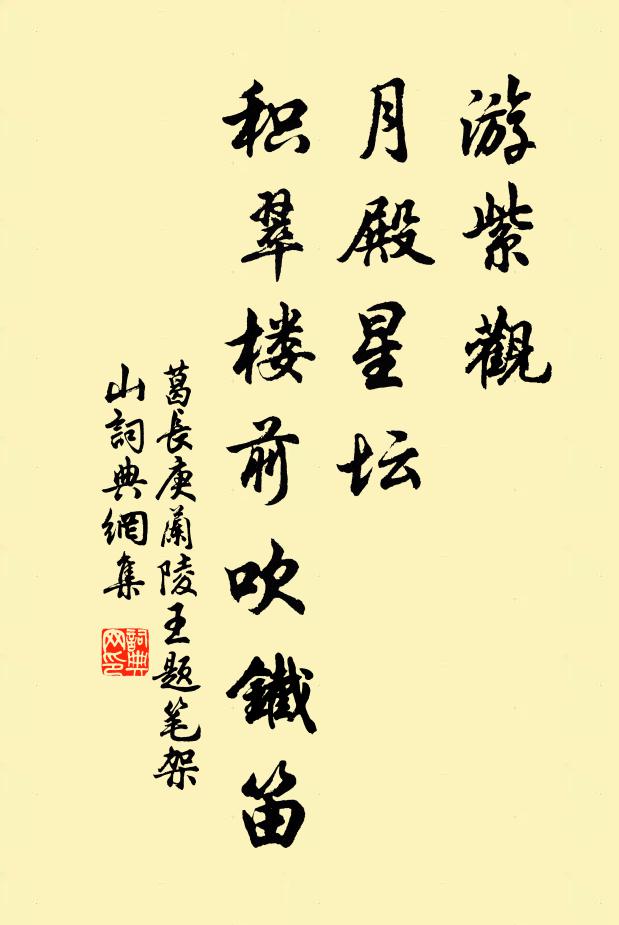 游紫觀
月殿星坛
积翠楼前吹鐵笛
葛長庚蘭陵王题笔架
山詞典網集
詞典网印